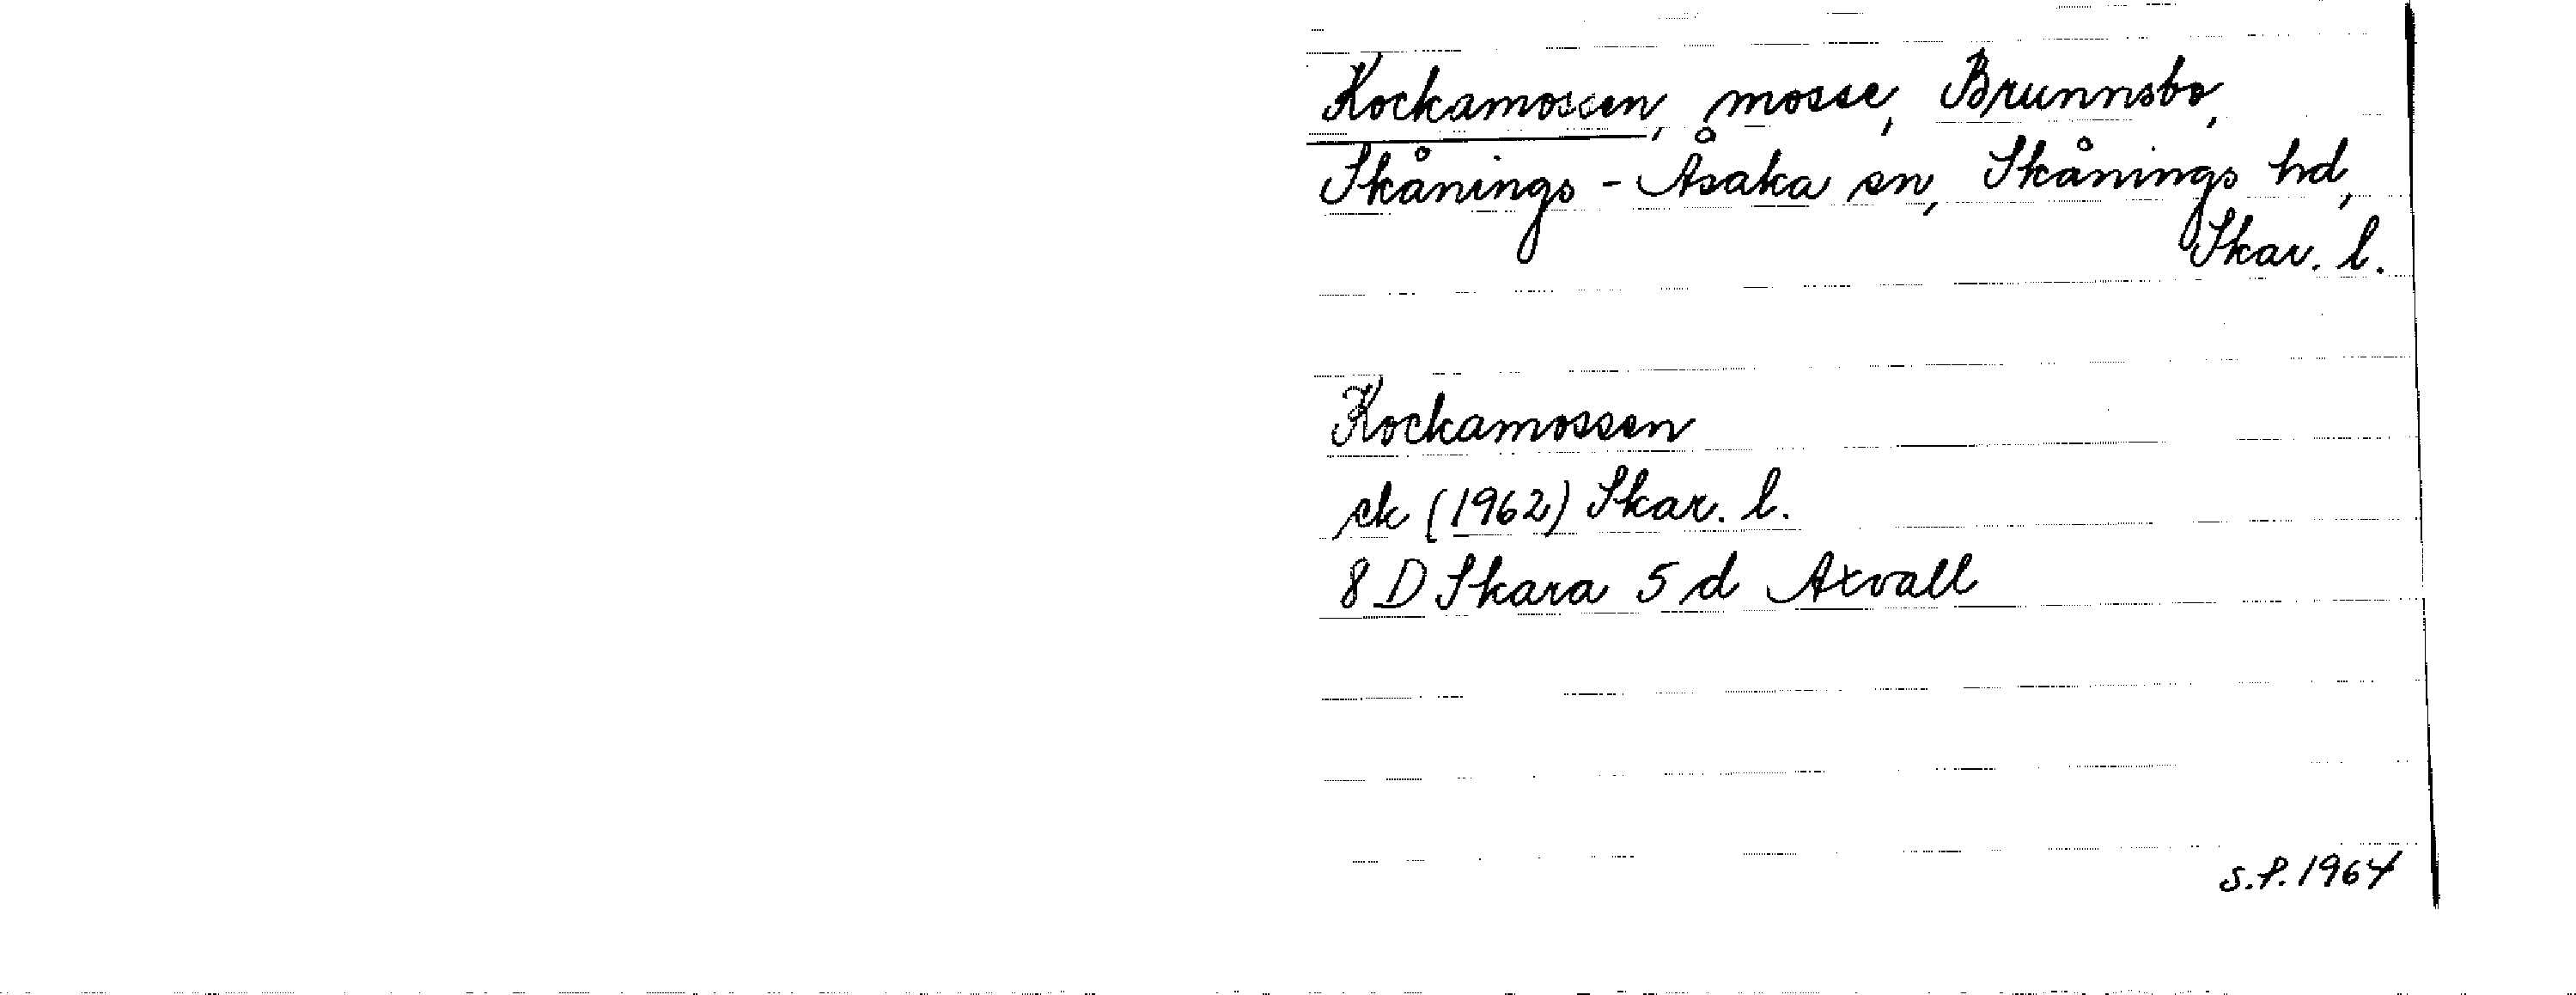 Kockamossen, mosse, Brunnsbo,
Skånings-Åsaka sn, Skånings hd,
Skar. l.
Kockamossen
ek (1962) Skar. l.
8 D Skara 5 d Axvall
S.P. 1964